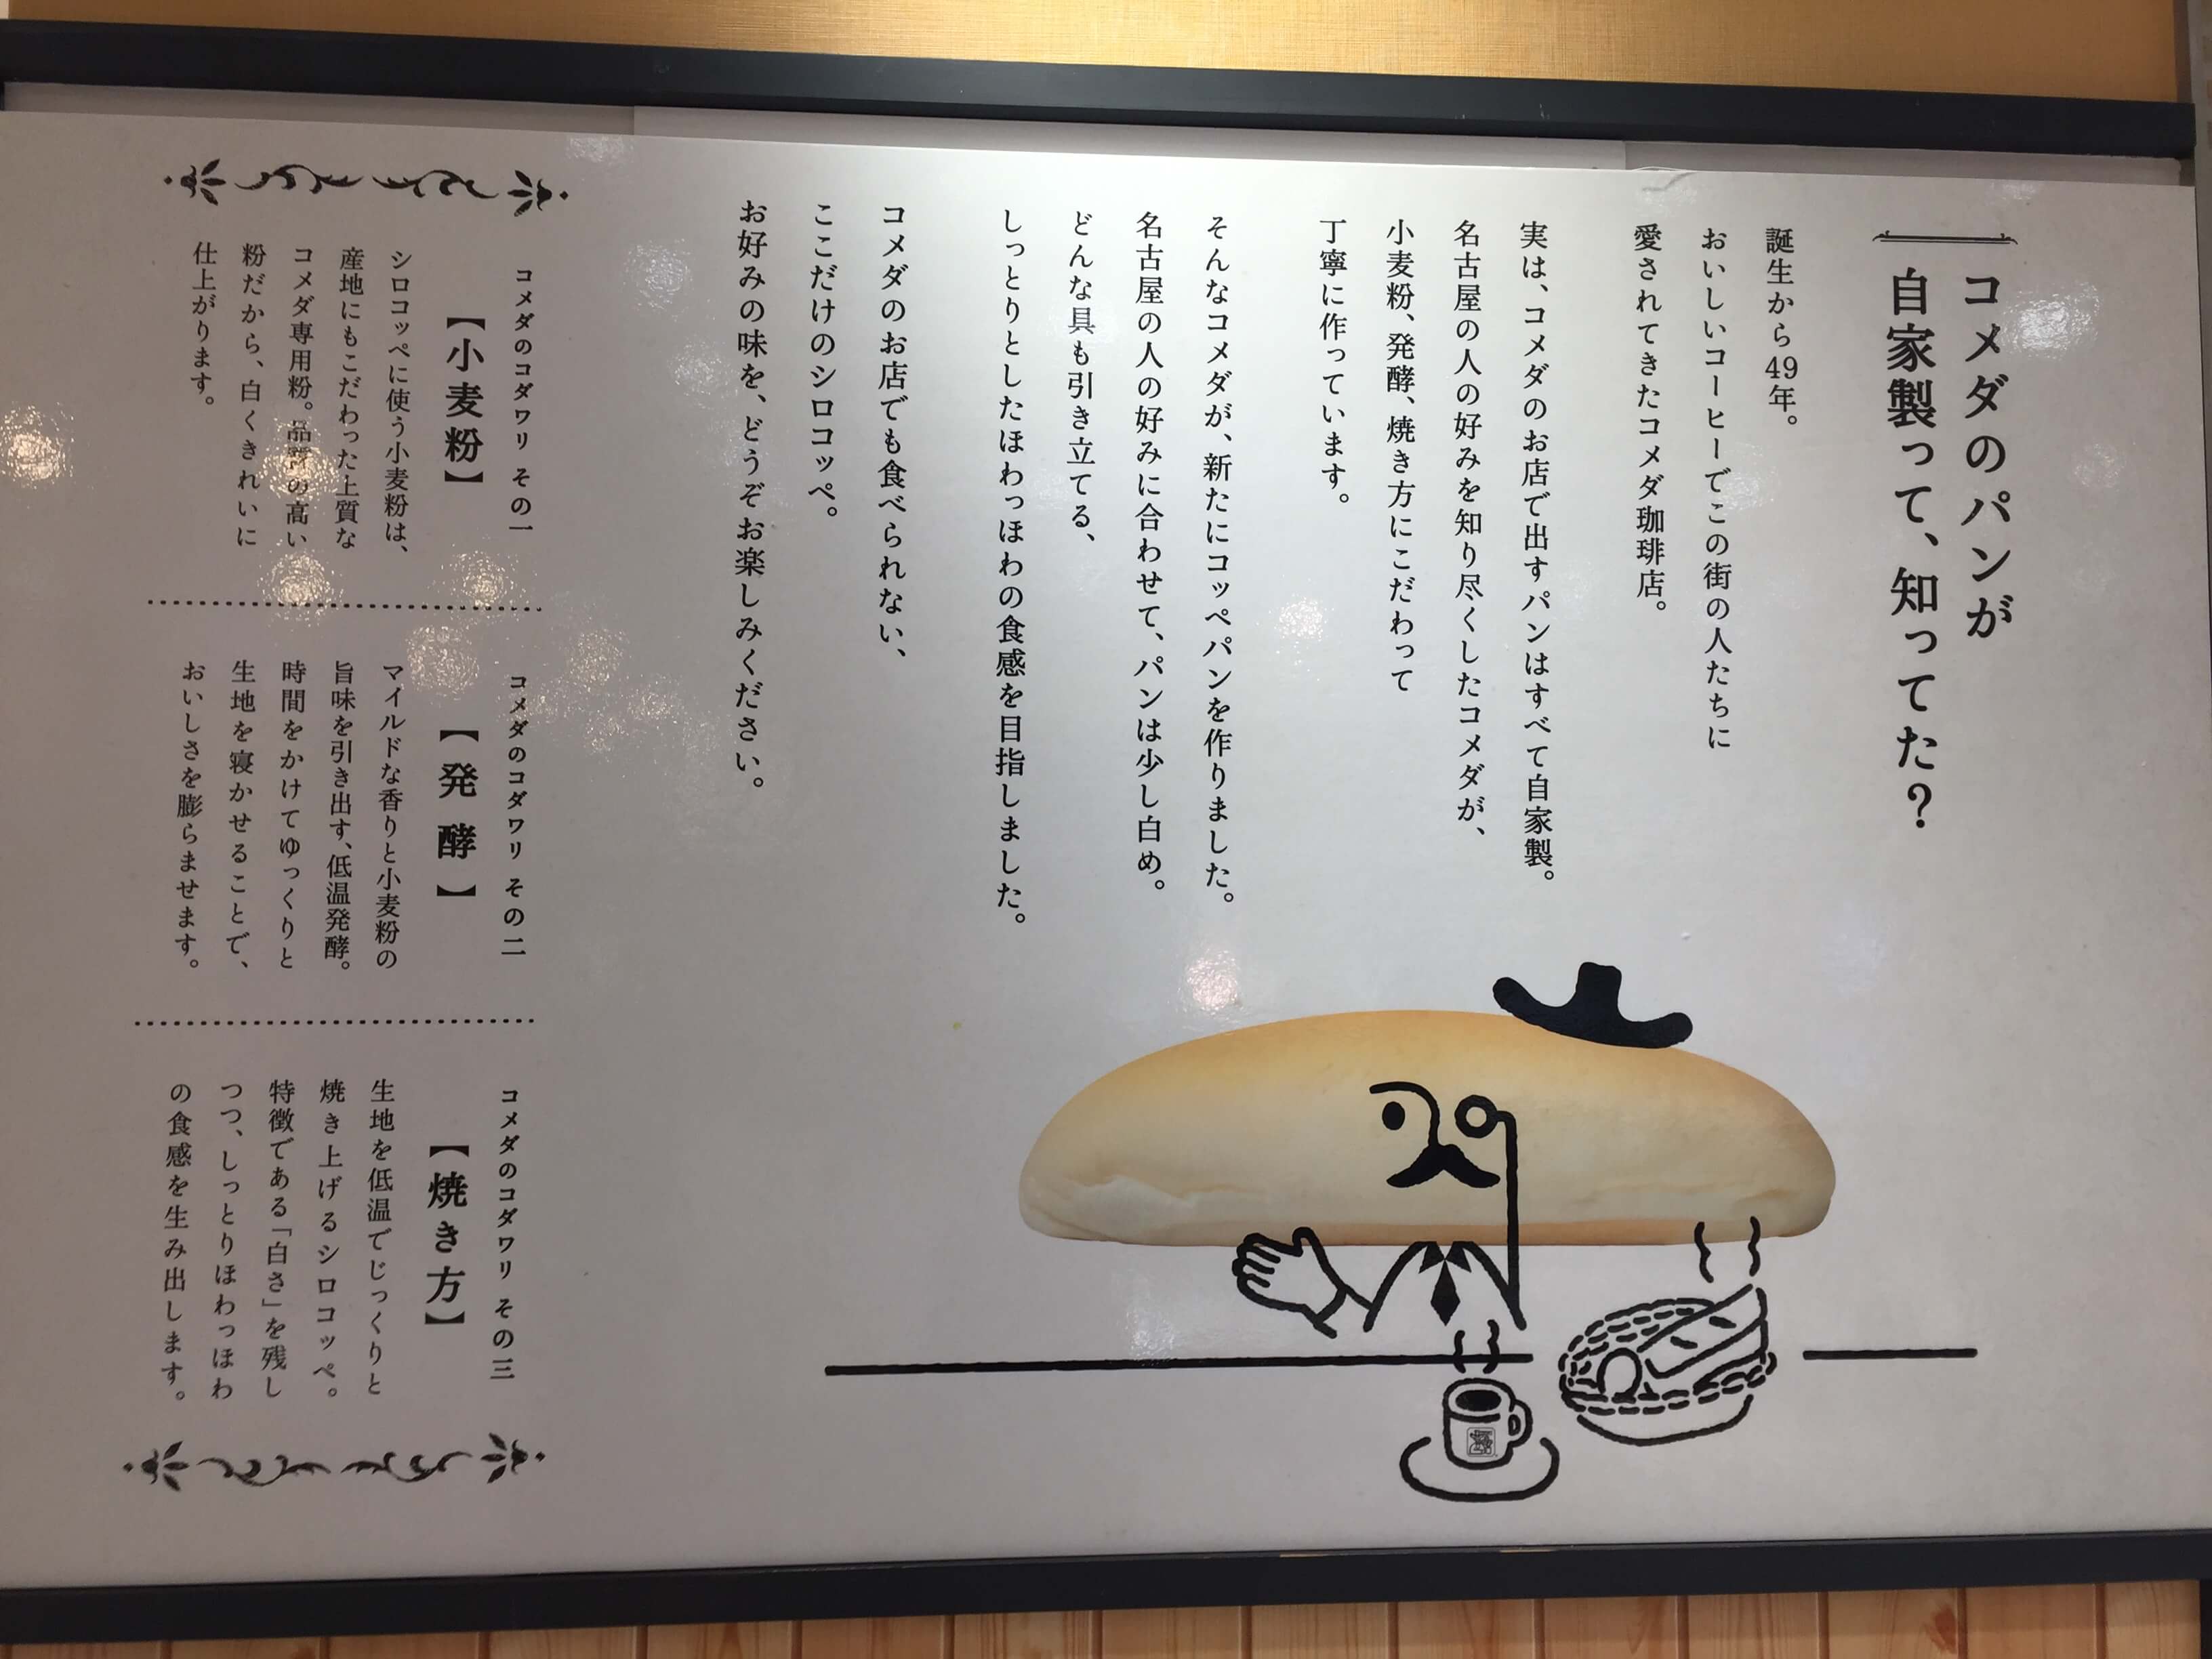 コメダのパンが
自家製って、知ってた?
誕生から49年。
おいしいコーヒーでこの街の人たちに
愛されてきたコメダ珈琲店。
実は、コメダのお店で出すパンはすべて自家製。
名古屋の人の好みを知り尽くしたコメダが、
小麦粉、発酵、焼き方にこだわって
丁寧に作っています。
そんなコメダが、新たにコッペパンを作りました。
名古屋の人の好みに合わせて、パンは少し白め。
どんな具も引き立てる、
しっとりとしたほわっほわの食感を目指しました。
コメダのお店でも食べられない、
ここだけのシロコッペ。
お好みの味を、どうぞお楽しみください。
コメダのコダワリ その一
【小麦粉】
シロコッペに使う小麦粉は、
産地にもこだわった上質な
コメダ専用粉。品質の高い
粉だから、白くきれいに
仕上がります。
コメダのコダワリ その二
【発酵】
マイルドな香りと小麦粉の
旨味を引き出す、低温発酵。
時間をかけてゆっくりと
生地を寝かせることで、
おいしさを膨らませます。
コメダのコダワリ その三
【焼き方】
生地を低温でじっくりと
焼き上げるシロコッペ。
特徴である「白さ」を残し
つつ、しっとりほわっほわ
の食感を生み出します。